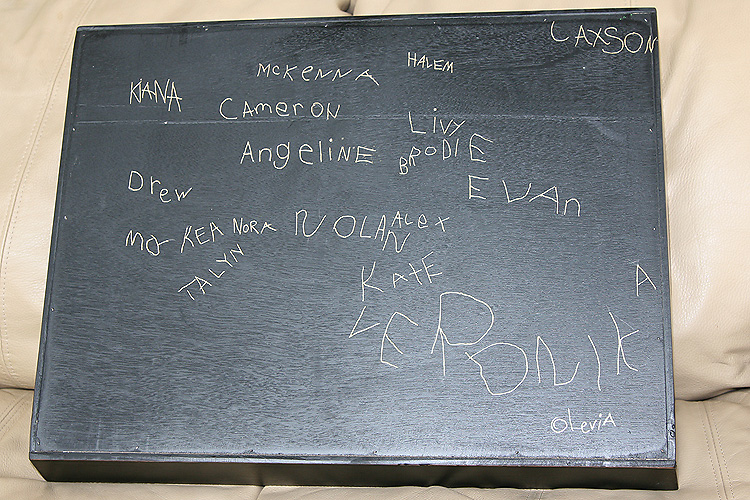 CAXSON
HALEM
McKENNA
KIANA
CAMERON
Livy
AngelinE
BRODIE
Drew
EVAn
NOLAN
ALEX
NORA
KEA
MJ
TALYN
KATE
VERONIK A
©LeviA